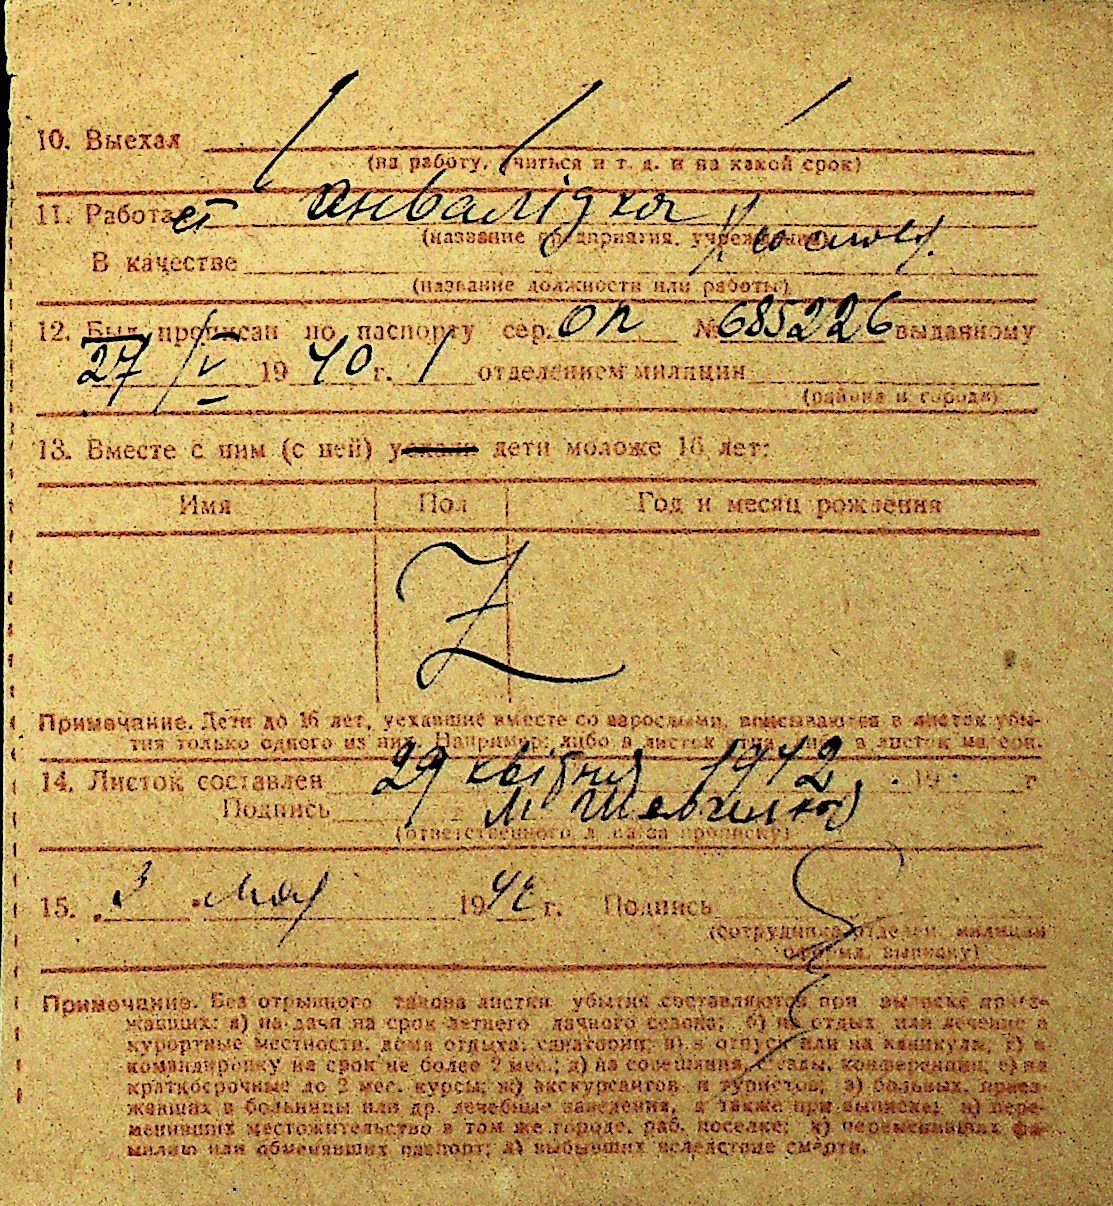 10. Выехал
(на работу, учиться и т. д. и на какой срок)
11. Работает інвалідка
(название предприятия, учреждения)
В качестве
(название должности или работы)
12. Был прописан по паспорту сер. ОП № 685226 выданному
27/V 1940 г. 1 отделением милиции
(района и города)
13. Вместе с ним (с ней) уехали дети моложе 16 лет:
Имя Пол Год и месяц рождения
Z
Примечание. Дети до 16 лет, уехавшие вместе со взрослыми, вписываются в листок убы-
тия только одного из них. Например: либо в листок отца, либо в листок матери.
14. Листок составлен 29 квітня 1942 19 г
Подпись М Шевченко
(ответственного лица за прописку)
15. 3 мая 1942 г. Подпись
(сотрудника отделен. милиции
оформл. выписку)
Примечание. Без отрывного талона листки убытия составляются при выписке приез-
жавших: а) на дачи на срок летнего дачного сезона; б) на отдых или лечение в
курортные местности, дома отдыха, санатории; в) в отпуск или на каникулы; г) в
командировку на срок не более 2 мес.; д) на совещания, съезды, конференции; е) на
краткосрочные до 2 мес. курсы; ж) экскурсантов и туристов; з) больных, приез-
жавших в больницы или др. лечебные заведения, а также при выписке: и) пере-
менивших местожительство в том же городе, раб. поселке; к) переменивших фа-
милию или обменявших паспорт; л) выбывших вследствие смерти.